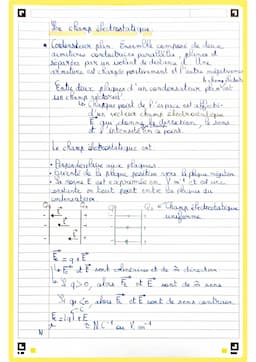 Le champ électrostatique.
• Condensateur plan. Ensemble composé de deux
armatures conductrices parallèles, planes et
séparées par un isolant de distance d. Une
armature est chargée positivement et l'autre négativement
Entre deux plaques d'un condensateur plan
un champ vectoriel
↳ Chaque point de l'espace est affecté
d'un vecteur champ électrostatique
E qui donne la direction, le sens
et l'intensité en ce point.
Le champ électrostatique est
• Perpendiculaire aux plaques.
• orienté de la plaque positive vers la plaque négative
• Sa norme E est exprimée en V.m⁻¹ et est une
constante en tout point entre les plaques du
condensateur
Champ électrostatique
uniforme
Fe = q × E
↳ Fe et E sont colinéaires et de m direction
↳ Si q > 0, alors Fe et E sont de m sens
Si q < 0, alors Fe et E sont de sens contraire
Fe = |q| × E
↳ N.C⁻¹ ou V.m⁻¹